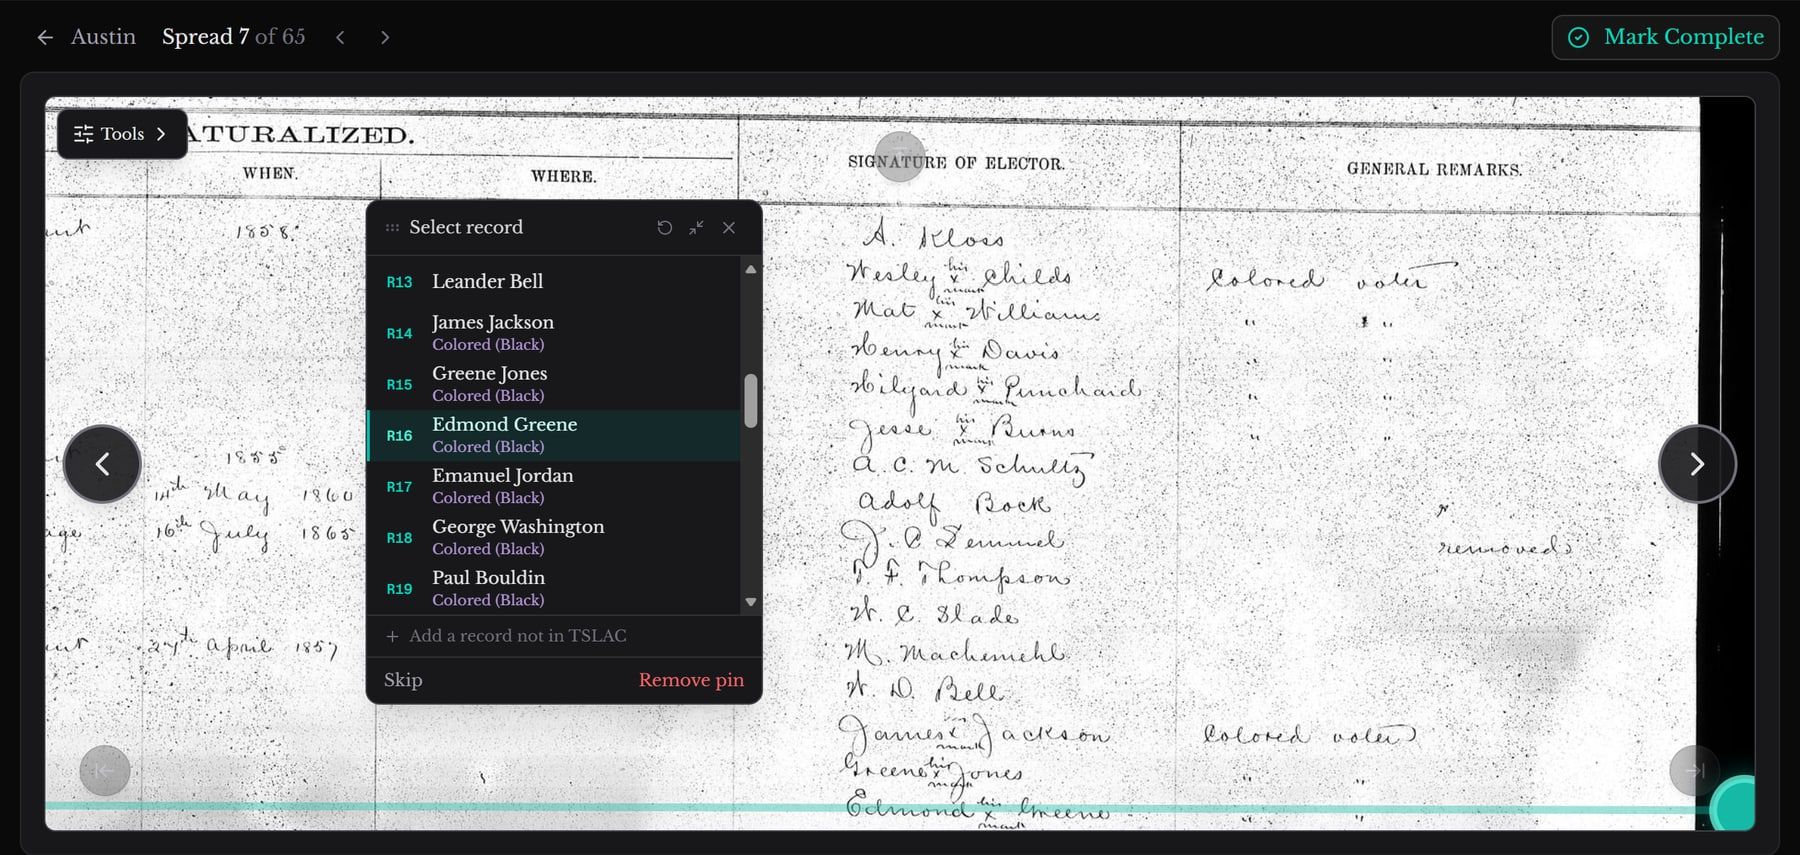 Austin Spread 7 of 65
Mark Complete
Tools
ATURALIZED.
WHEN.
WHERE.
SIGNATURE OF ELECTOR.
GENERAL REMARKS.
1858.
1855
14th May 1860
16th July 1865
27th April 1857
Select record
R13 Leander Bell
R14 James Jackson
Colored (Black)
R15 Greene Jones
Colored (Black)
R16 Edmond Greene
Colored (Black)
R17 Emanuel Jordan
Colored (Black)
R18 George Washington
Colored (Black)
R19 Paul Bouldin
Colored (Black)
+ Add a record not in TSLAC
Skip
Remove pin
A. Kloss
Wesley his x mark Childs Colored voter
Mat his x mark Williams " "
Henry his x mark Davis " "
Hilyard his x mark Punchard " "
Jesse his x mark Burns " "
A. C. M. Schultz
Adolf Bock
J. C. removed
T. F. Thompson
W. C. Slade
M. Machemehl
W. D. Bell
James x mark Jackson Colored voter
Greene his x mark Jones " "
Edmond his x mark Greene " "